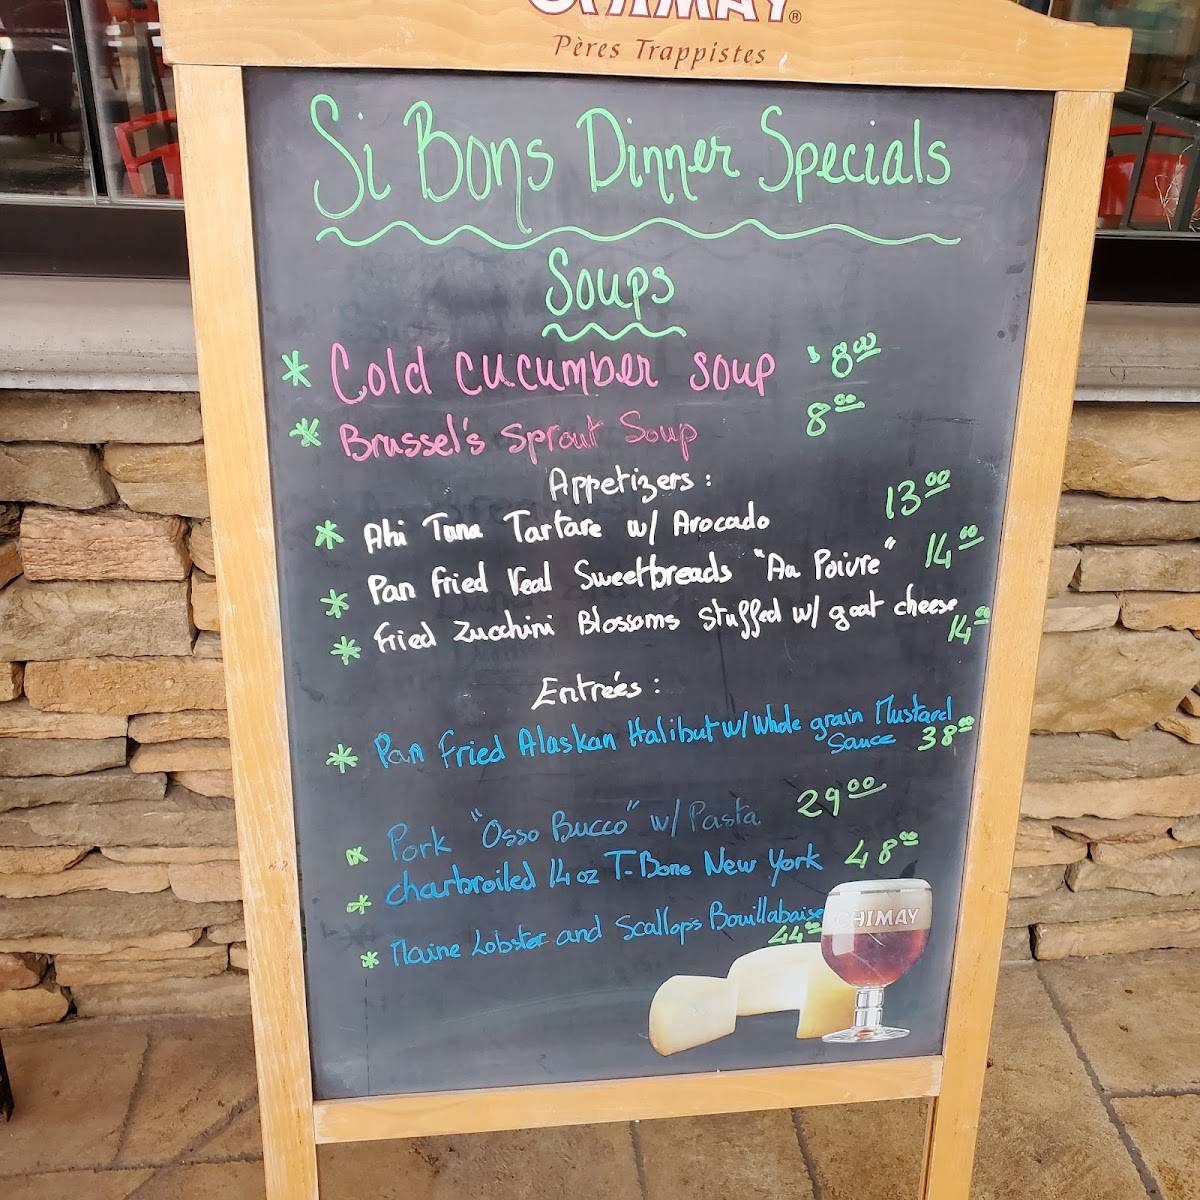 CHIMAY®
Pères Trappistes
Si Bons Dinner Specials
Soups
* Cold cucumber soup $8.00
* Brussel's Sprout Soup 8.00
Appetizers :
* Ahi Tuna Tartare w/ Avocado 13.00
* Pan fried Veal Sweetbreads "Au Poivre" 14.00
* fried Zucchini Blossoms stuffed w/ goat cheese 14.00
Entrées :
* Pan fried Alaskan Halibut w/ whole grain Mustard
Sauce 38.00
* Pork "Osso Bucco" w/ Pasta 29.00
* charbroiled 14 oz T-Bone New York 48.00
* Maine Lobster and Scallop's Bouillabaise
44.00
CHIMAY